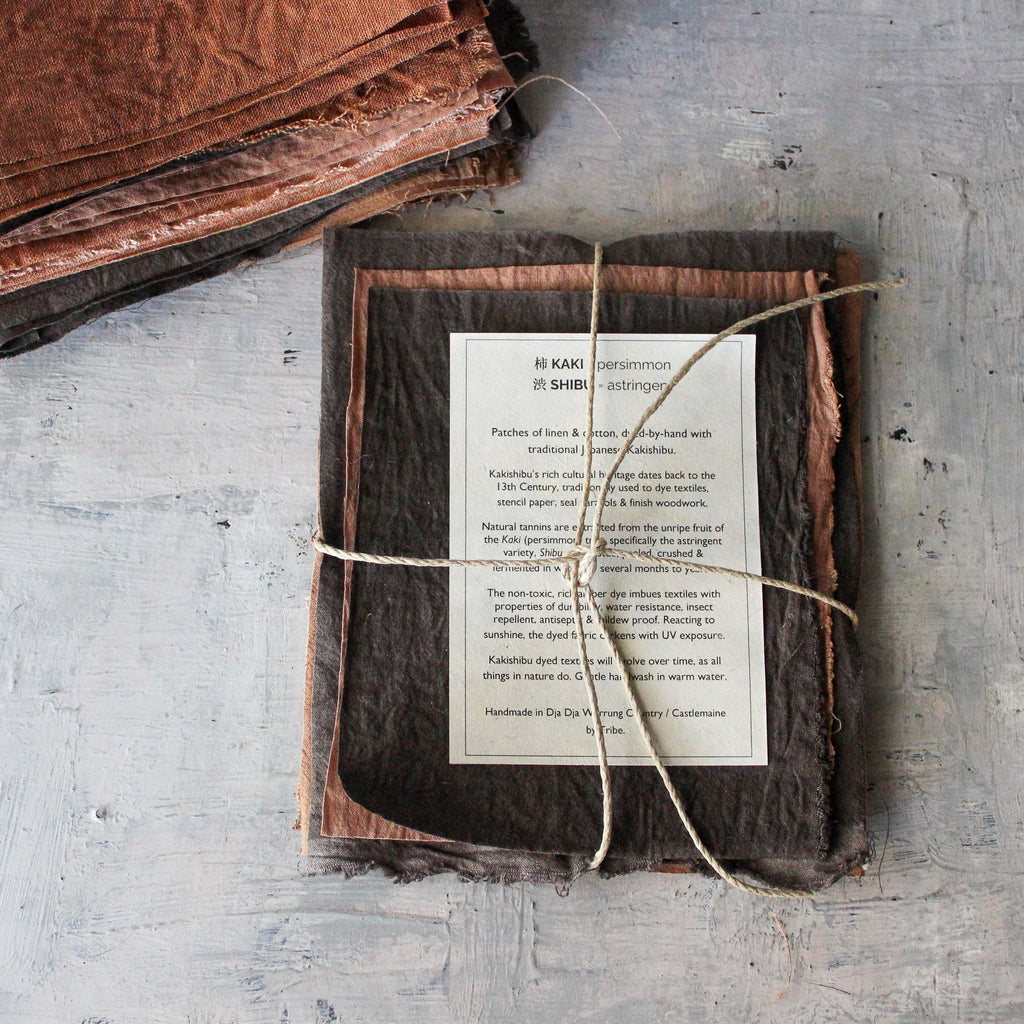 柿 KAKI = persimmon
渋 SHIBU = astringent
Patches of linen & cotton, dyed-by-hand with
traditional Japanese Kakishibu.
Kakishibu's rich cultural heritage dates back to the
13th Century, traditionally used to dye textiles,
stencil paper, seal parasols & finish woodwork.
Natural tannins are extracted from the unripe fruit of
the Kaki (persimmon), specifically the astringent
variety, Shibu crushed &
fermented in several months to years.
The non-toxic, rich amber dye imbues textiles with
properties of durability, water resistance, insect
repellent, antiseptic & mildew proof. Reacting to
sunshine, the dyed fabric darkens with UV exposure.
Kakishibu dyed textiles will evolve over time, as all
things in nature do. Gentle handwash in warm water.
Handmade in Dja Dja Warrung Country / Castlemaine
by Tribe.